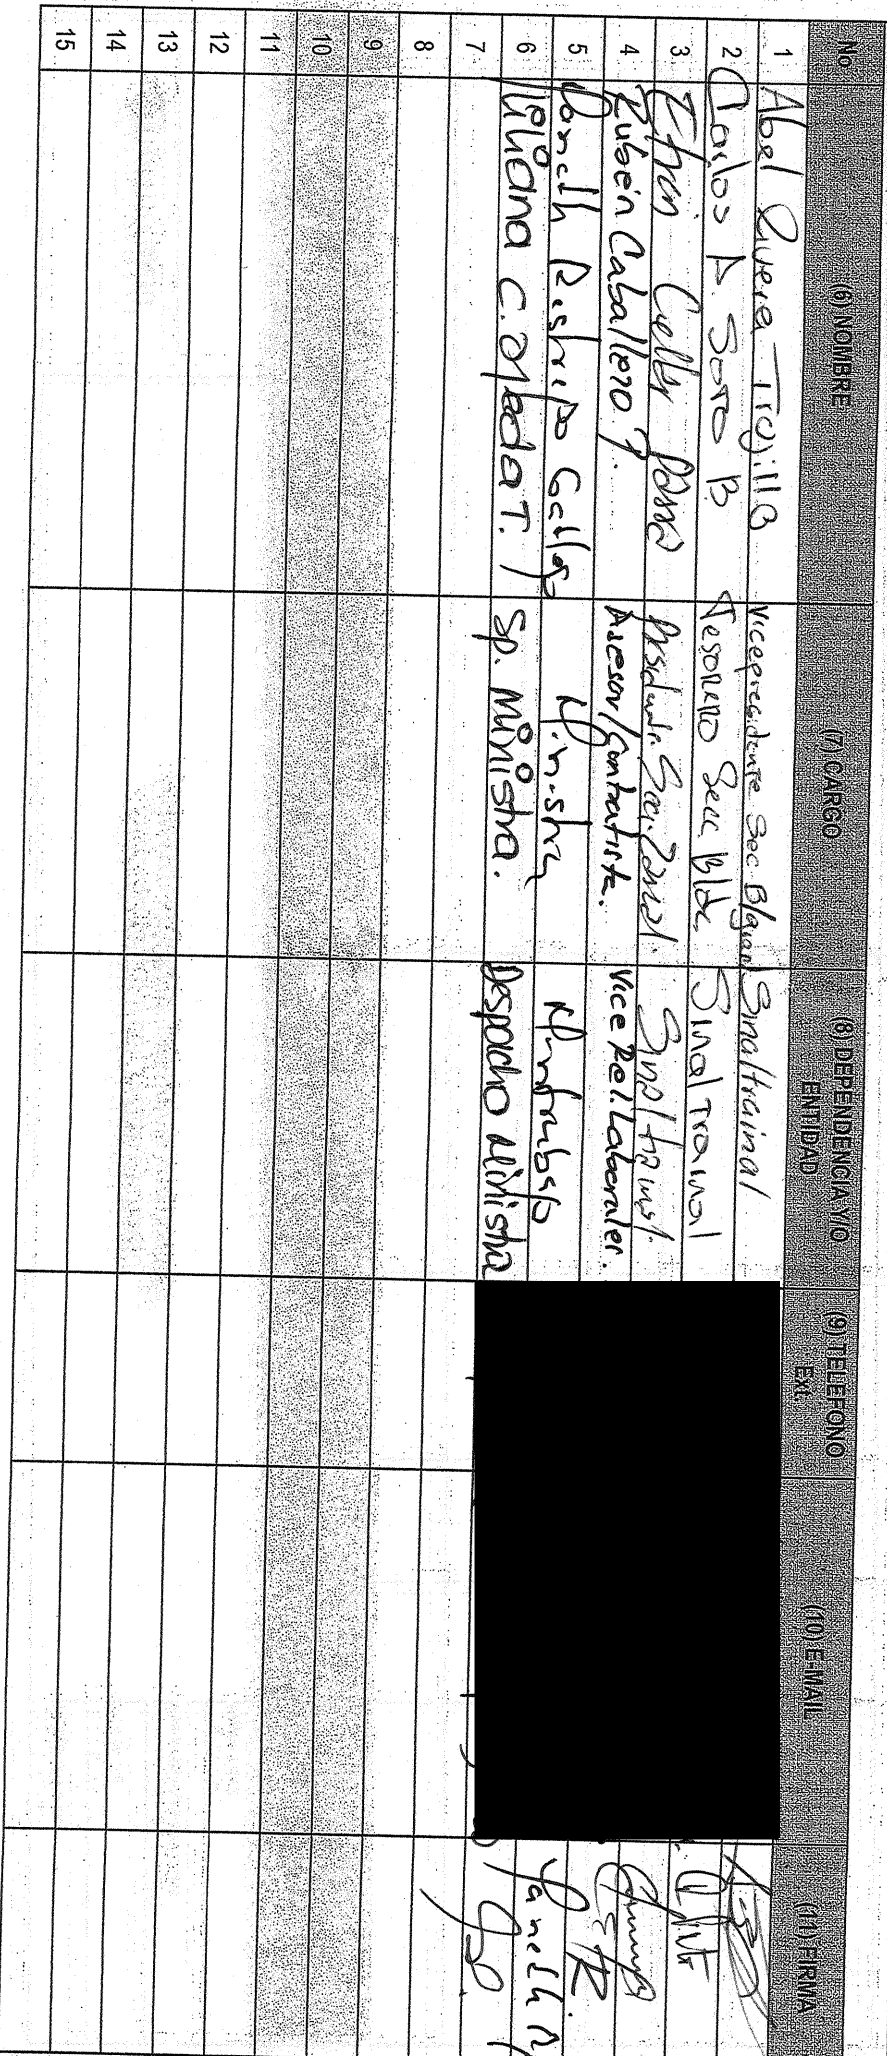 No (6) NOMBRE (7) CARGO (8) DEPENDENCIA Y/O ENTIDAD (9) TELEFONO Ext. (10) E-MAIL (11) FIRMA
1 Abel Rivera Trujillo Vicepresidente Sec B/grande Sinaltrainal
2 Carlos A. Soto B Tesorero Secc Sinaltrainal
3 Sinaltrainal
4 Rubén Caballero Asesor/Contratista. Vice Rel Laborales.
5 Yaneth Restrepo Gallego Ministra Mintrabajo Yaneth R
6 Liliana C. Ojeda T. Sp. Ministra. Despacho Ministra
7
8
9
10
11
12
13
14
15